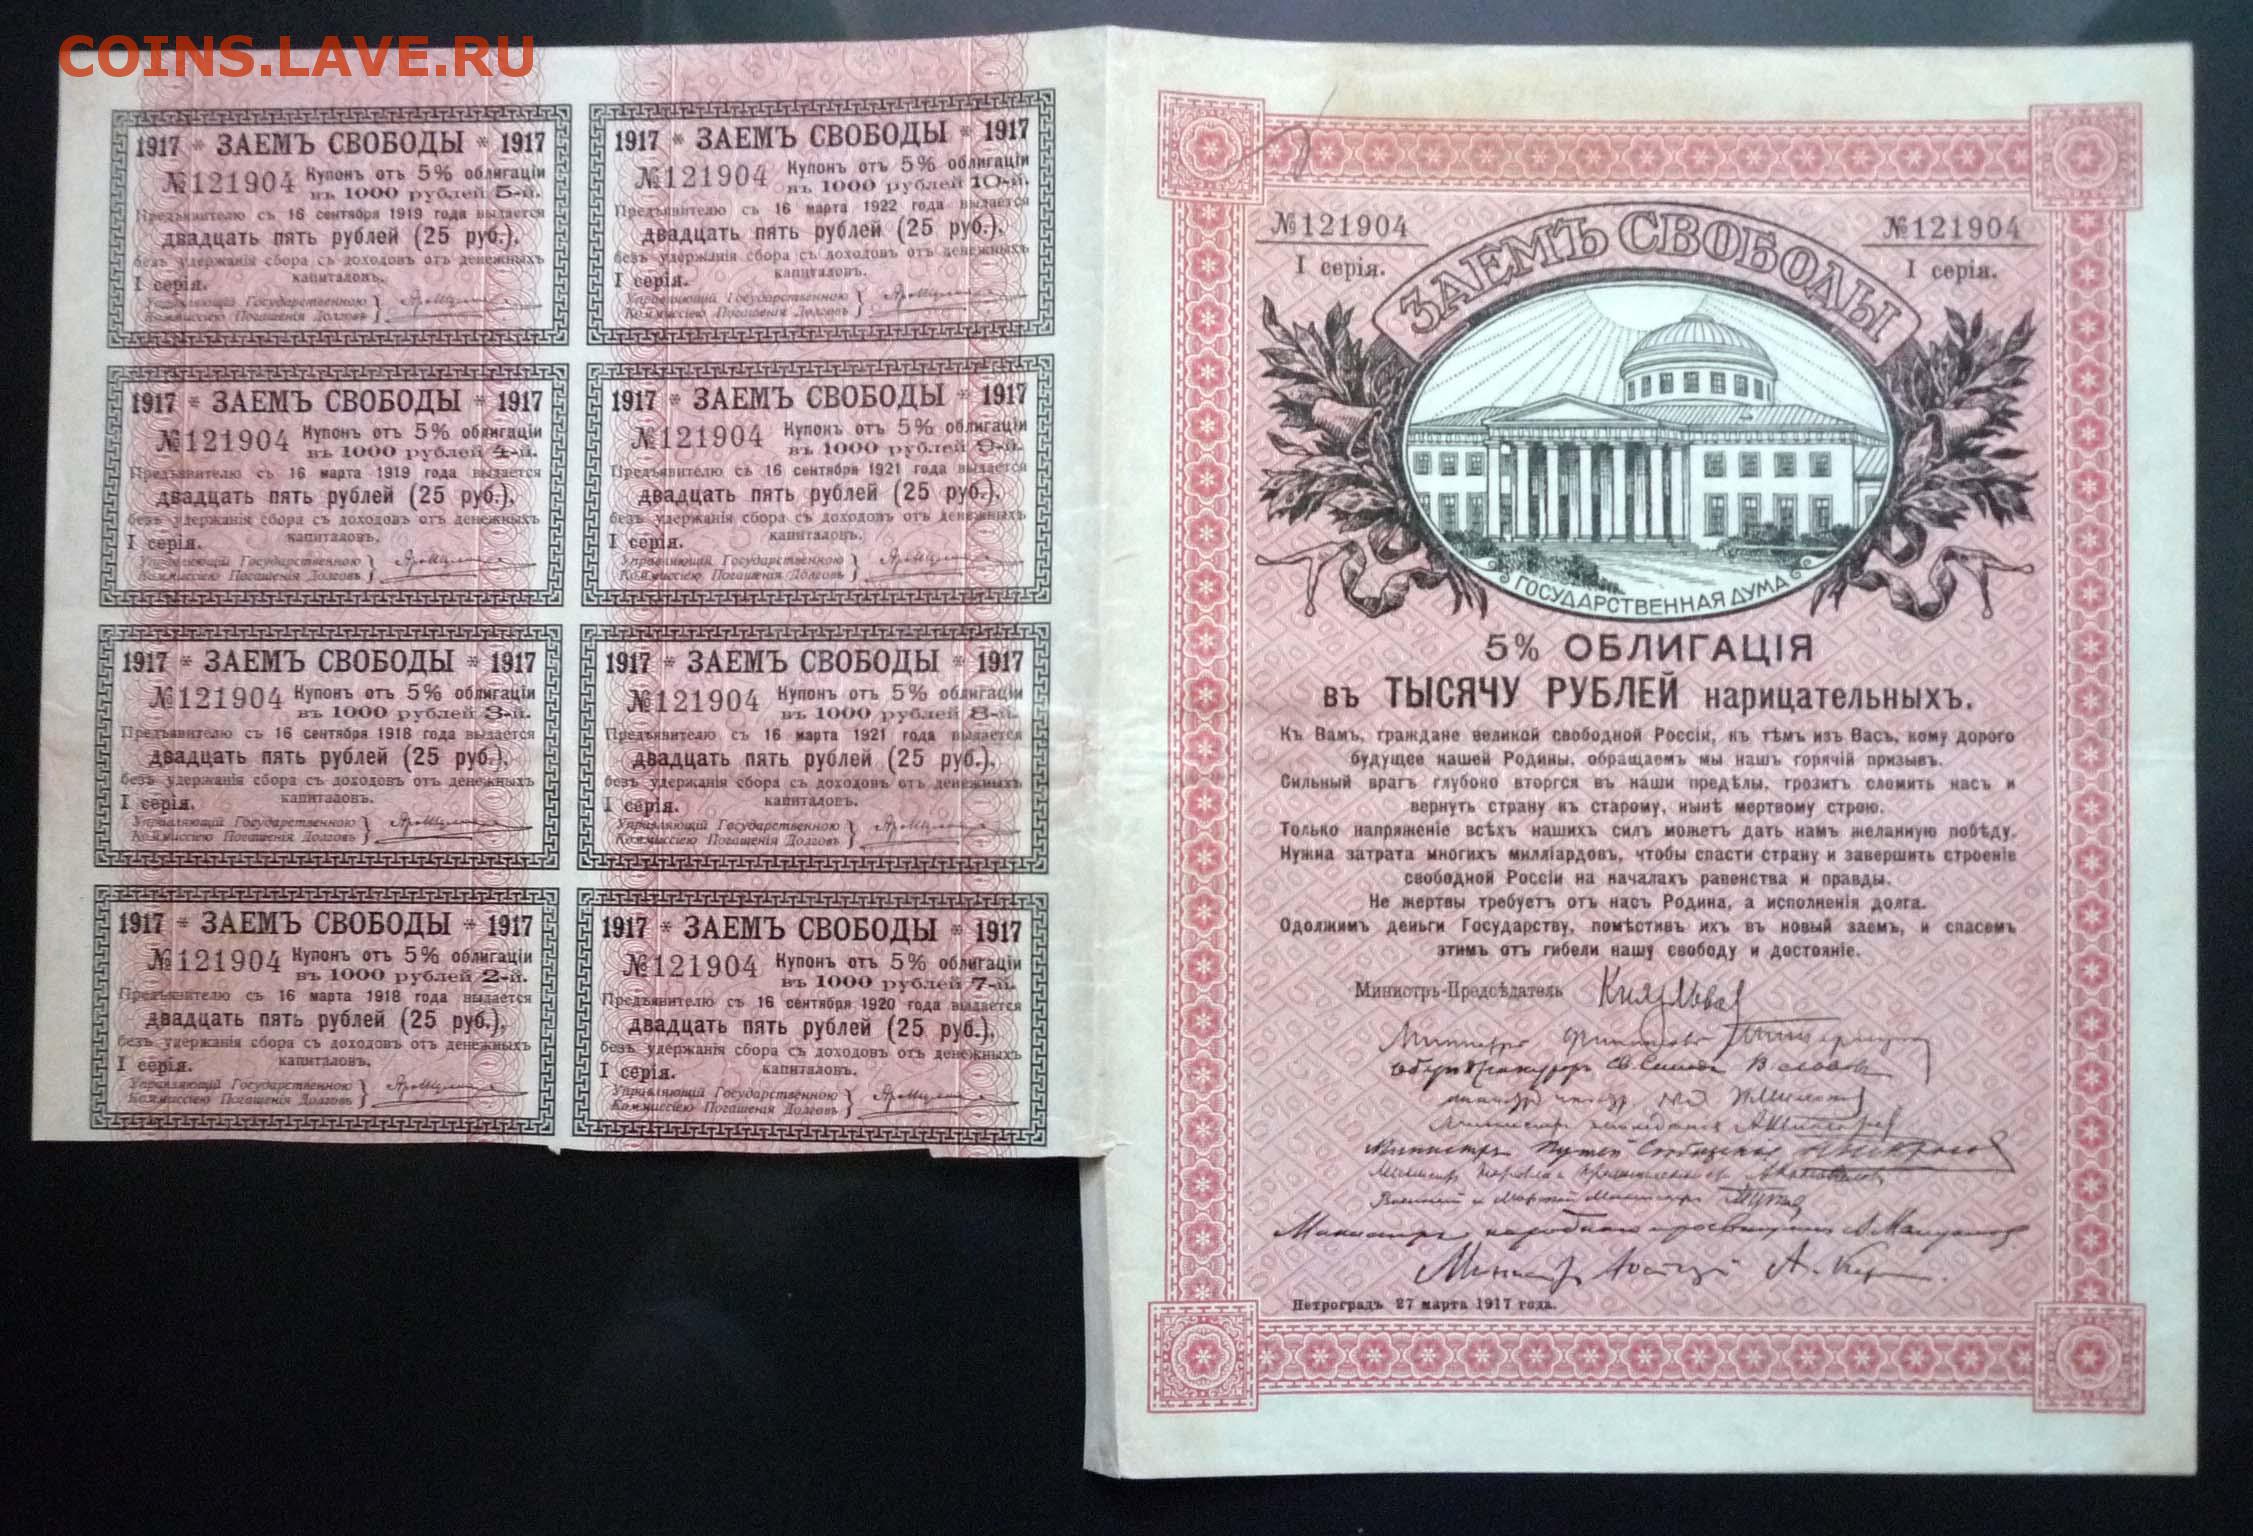 COINS.LAVE.RU
1917 * ЗАЕМЪ СВОБОДЫ * 1917
№121904 Купонъ отъ 5% облигаціи
въ 1000 рублей 5-й.
Предъявителю съ 16 сентября 1919 года выдается
двадцать пять рублей (25 руб.),
безъ удержанія сбора съ доходовъ отъ денежныхъ
капиталовъ.
I серія.
Управляющій Государственною
Коммиссіею Погашенія Долговъ
1917 * ЗАЕМЪ СВОБОДЫ * 1917
№121904 Купонъ отъ 5% облигаціи
въ 1000 рублей 10-й.
Предъявителю съ 16 марта 1922 года выдается
двадцать пять рублей (25 руб.),
безъ удержанія сбора съ доходовъ отъ денежныхъ
капиталовъ.
I серія.
Управляющій Государственною
Коммиссіею Погашенія Долговъ
1917 * ЗАЕМЪ СВОБОДЫ * 1917
№121904 Купонъ отъ 5% облигаціи
въ 1000 рублей 4-й.
Предъявителю съ 16 марта 1919 года выдается
двадцать пять рублей (25 руб.),
безъ удержанія сбора съ доходовъ отъ денежныхъ
капиталовъ.
I серія.
Управляющій Государственною
Коммиссіею Погашенія Долговъ
1917 * ЗАЕМЪ СВОБОДЫ * 1917
№121904 Купонъ отъ 5% облигаціи
въ 1000 рублей 9-й.
Предъявителю съ 16 сентября 1921 года выдается
двадцать пять рублей (25 руб.),
безъ удержанія сбора съ доходовъ отъ денежныхъ
капиталовъ.
I серія.
Управляющій Государственною
Коммиссіею Погашенія Долговъ
1917 * ЗАЕМЪ СВОБОДЫ * 1917
№121904 Купонъ отъ 5% облигаціи
въ 1000 рублей 3-й.
Предъявителю съ 16 сентября 1918 года выдается
двадцать пять рублей (25 руб.),
безъ удержанія сбора съ доходовъ отъ денежныхъ
капиталовъ.
I серія.
Управляющій Государственною
Коммиссіею Погашенія Долговъ
1917 * ЗАЕМЪ СВОБОДЫ * 1917
№121904 Купонъ отъ 5% облигаціи
въ 1000 рублей 8-й.
Предъявителю съ 16 марта 1921 года выдается
двадцать пять рублей (25 руб.),
безъ удержанія сбора съ доходовъ отъ денежныхъ
капиталовъ.
I серія.
Управляющій Государственною
Коммиссіею Погашенія Долговъ
1917 * ЗАЕМЪ СВОБОДЫ * 1917
№121904 Купонъ отъ 5% облигаціи
въ 1000 рублей 2-й.
Предъявителю съ 16 марта 1918 года выдается
двадцать пять рублей (25 руб.),
безъ удержанія сбора съ доходовъ отъ денежныхъ
капиталовъ.
I серія.
Управляющій Государственною
Коммиссіею Погашенія Долговъ
1917 * ЗАЕМЪ СВОБОДЫ * 1917
№121904 Купонъ отъ 5% облигаціи
въ 1000 рублей 7-й.
Предъявителю съ 16 сентября 1920 года выдается
двадцать пять рублей (25 руб.),
безъ удержанія сбора съ доходовъ отъ денежныхъ
капиталовъ.
I серія.
Управляющій Государственною
Коммиссіею Погашенія Долговъ
№121904 №121904
I серія. I серія.
ЗАЕМЪ СВОБОДЫ
ГОСУДАРСТВЕННАЯ ДУМА
5% ОБЛИГАЦІЯ
въ ТЫСЯЧУ РУБЛЕЙ нарицательныхъ.
Къ Вамъ, граждане великой свободной Россіи, къ тѣмъ изъ Васъ, кому дорого
будущее нашей Родины, обращаемъ мы нашъ горячій призывъ.
Сильный врагъ глубоко вторгся въ наши предѣлы, грозитъ сломить насъ и
вернуть страну къ старому, нынѣ мертвому строю.
Только напряженіе всѣхъ нашихъ силъ можетъ дать намъ желанную побѣду.
Нужна затрата многихъ милліардовъ, чтобы спасти страну и завершить строеніе
свободной Россіи на началахъ равенства и правды.
Не жертвы требуетъ отъ насъ Родина, а исполненія долга.
Одолжимъ деньги Государству, помѣстивъ ихъ въ новый заемъ, и спасемъ
этимъ отъ гибели нашу свободу и достояніе.
Министръ-Предсѣдатель Князь Львов
Министръ Финансовъ
Оберъ Прокуроръ Св. Синода В. Львов
Министръ Путей Сообщенія
Министръ Торговли и Промышленности
Военный и Морской Министръ
Министръ народнаго просвѣщенія А. Мануйлов
Министр Юстиціи А. Керенский
Петроградъ 27 марта 1917 года.